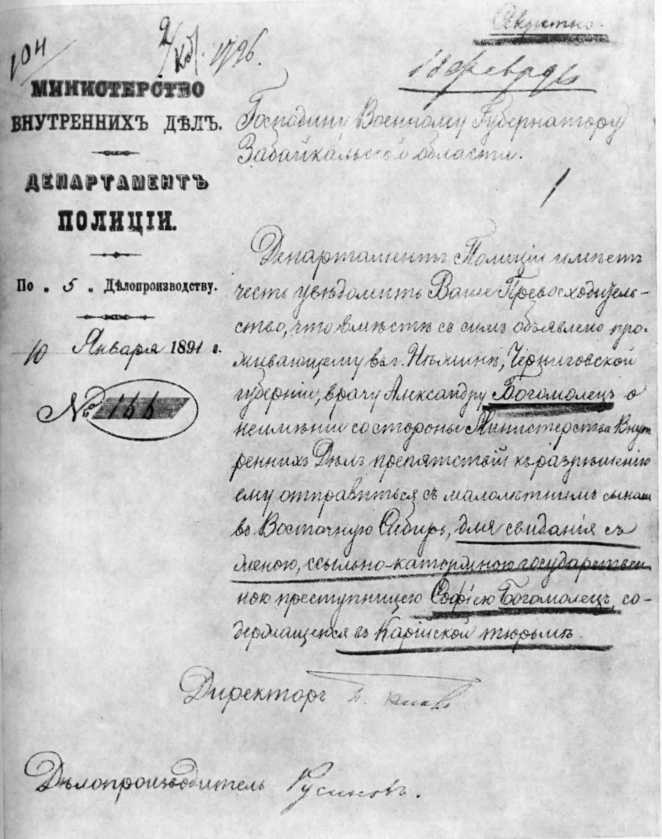 Секретно.
104
18 февраля
МИНИСТЕРСТВО
ВНУТРЕННИХЪ ДѢЛЪ.
ДЕПАРТАМЕНТЪ
ПОЛИЦІИ.
По „ 5 „ Дѣлопроизводству.
10 Января 1891 г.
№ 166
Господину Военному Губернатору
Забайкальской области.
Департаментъ Полиціи имѣетъ
честь увѣдомить Ваше Превосходитель-
ство, что вмѣстѣ съ симъ объявлено про-
живающему въ г. Нѣжинѣ, Черниговской
губерніи, врачу Александру Богомолецъ о
неимѣніи со стороны Министерства Внут-
реннихъ Дѣлъ препятствій къ разрѣшенію
ему отправиться съ малолѣтнимъ сыномъ
въ Восточную Сибирь, для свиданія съ
женою, ссыльно-каторжною государствен-
ною преступницею Софіею Богомолецъ, со-
держащейся въ Карійской тюрьмѣ.
Директоръ
Дѣлопроизводитель Русиновъ.